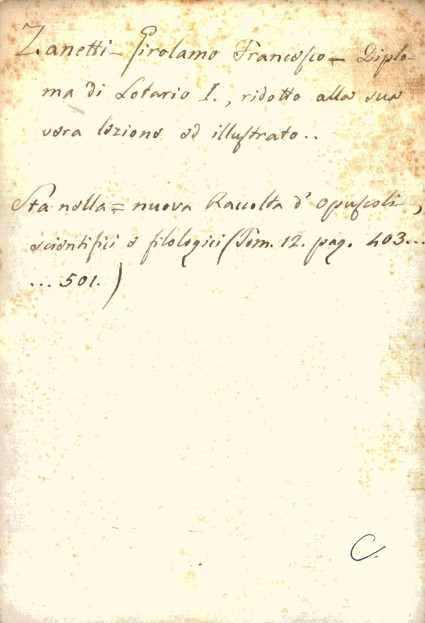 Zanetti - Girolamo Francesco - Diplo-
ma di Lotario I., ridotto alla sua
vera lezione ed illustrato..
Sta nella = nuova Raccolta d' opuscoli,
scientifici e filologici (Tom. 12. pag. 403...
... 501.)
C.